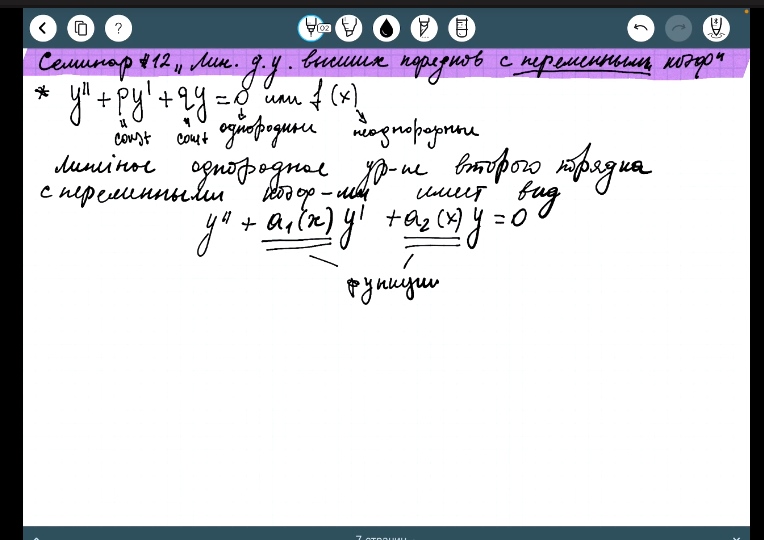 Семинар #12 „Лин. д.у. высших порядков с переменными коэф"
* y'' + py' + qy = 0 или f(x)
const const однородные неоднородные
Линейное однородное ур-ие второго порядка
с переменными коэф-ми имеет вид
y'' + a₁(x) y' + a₂(x) y = 0
функции
7 страниц